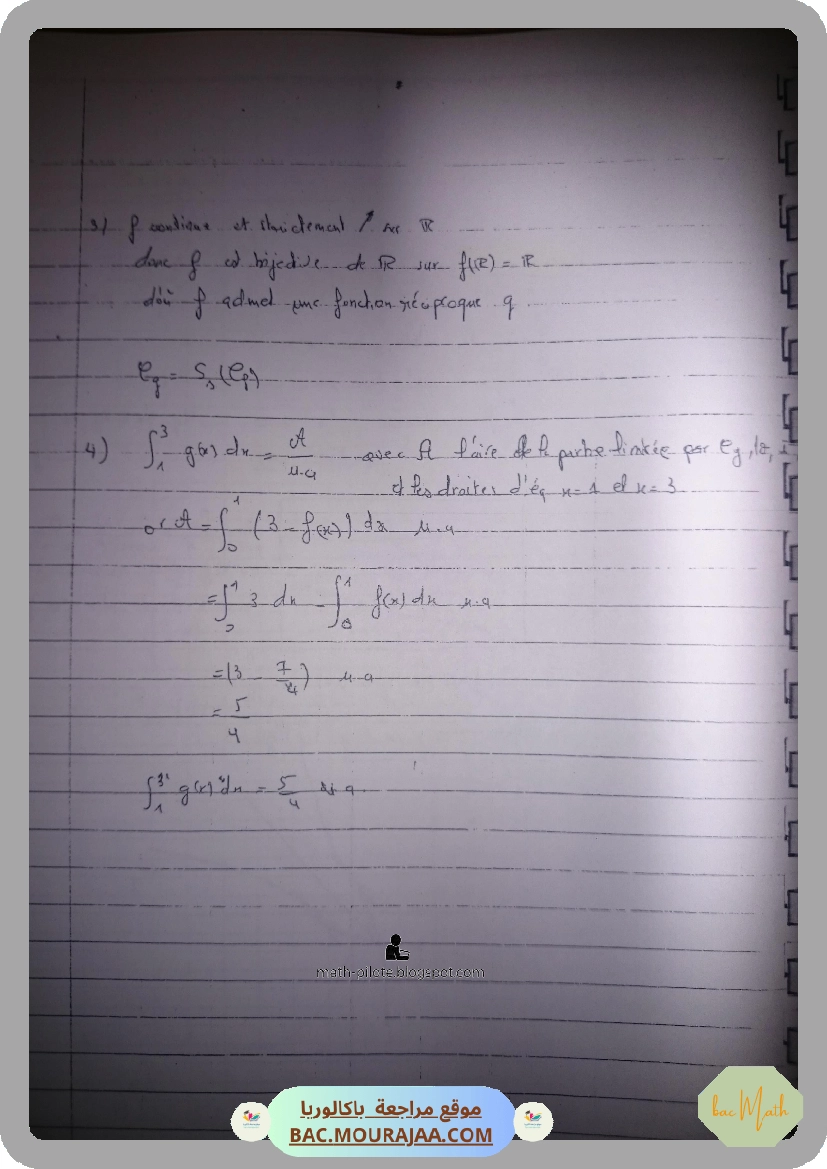 3) f continue et strictement ↗ sur ℝ
donc f est bijective de ℝ sur f(ℝ) = ℝ
d'où f admet une fonction réciproque g
𝒞g = S (𝒞f)
4) ∫₁³ g(x) dx = 𝒜 / u.a avec 𝒜 l'aire de la partie limitée par 𝒞g,
et les droites d'éq x = 1 et x = 3
or 𝒜 = ∫₀¹ (3 - f(x)) dx u.a
= ∫₀¹ 3 dx - ∫₀¹ f(x) dx u.a
= (3 - 7/4) u.a
= 5/4
∫₁³ g(x) dx = 5/4
math-pilote.blogspot.com
موقع مراجعة باكالوريا
BAC.MOURAJAA.COM
bac Math